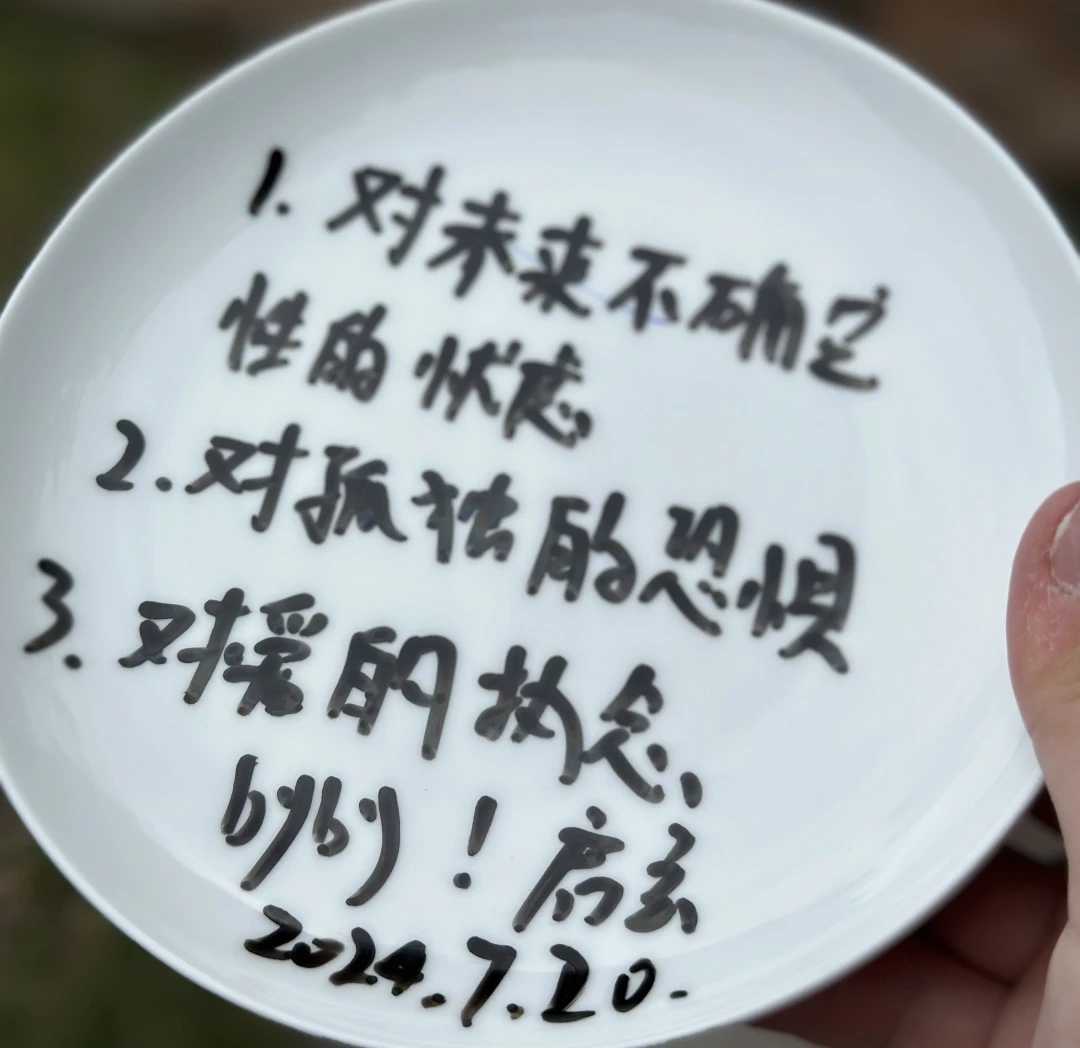 1. 对未来不确定
性的忧虑
2. 对孤独的恐惧
3. 对爱的执念、
byby!
2024.7.20.